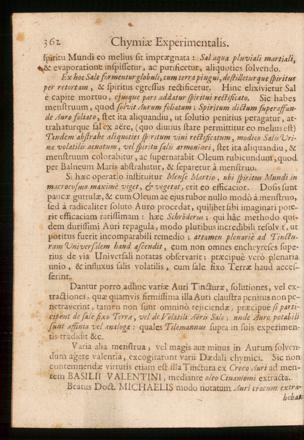 362 Chymiæ Experimentalis.
spiritu Mundi eo melius sit imprægnata: Sal aqua pluviali martiali,
& evaporatione inspissetur, ac purificetur, aliquoties solvendo.
Ex hoc Sale formentur globuli, cum terra pingui, destilletur que spiritus
per retortam, & spiritus egressus rectificetur. Hinc elixivietur Sal
è capite mortuo, ejusque pars addatur spiritui rectificato. Sic habes
menstruum, quod solvit Aurum foliatum: Spiritum dictum superaffun-
de Auro foliato, stet ita aliquandiu, ut solutio penitius peragatur, at-
trahaturque sal ex aëre, (quo diutius stare permittitur eo melius est)
Tandem abstrahe aliquoties spiritum vini rectificatum, modico Salis Uri-
næ volatilis acuatum, vel spiritu salis armoniaci, stet ita aliquandiu, &
menstruum colorabitur, ac supernatabit Oleum rubicundum, quod
per Balneum Maris abstrahatur, & separetur à menstruo.
Si hæc operatio instituatur Mense Martio, ubi spiritus Mundi in
macrocosmo maximè viget, & vegetat, erit eo efficacior. Dosis sunt
paucæ guttulæ, & cum Oleum ac ejus rubor nullo modo à menstruo,
sed à radicaliter soluto Auro procedat, quislibet sibi imaginari pote-
rit efficaciam rarissimam: hæc Schröderus: qui hâc methodo qui-
dem durissimi Auri repagula, modo pluribus incredibili resolvit, ut
potitus fuerit incomparabili remedio; attamen plenariè ad Tinctu-
ram Universalem haud ascendit, cum non omnes encheyreses supe-
rius de via Universali notatas observarit; præcipuè verò plenaria
unio, & influxus salis volatilis, cum sale fixo Terræ haud acces-
serint.
Dantur porro adhuc variæ Auri Tincturæ, solutiones, vel ex-
tractiones, quæ quamvis firmissima illa Auri claustra penitus non pe-
netraverint, tamen non sunt omnino rejiciendæ, præcipuè si parti-
cipent de sale fixo Terræ, vel de Volatili Aëreo Sale; unde Auro potabili
sunt affinia vel analoga: quales Tilemannus supra in suis experimen-
tis tradidit &c.
Varia alia menstrua, vel magis aut minus in Aurum solven-
dum agere valentia, excogitarunt varii Dædali chymici. Sic non
contemnendæ virtutis etiam est illa Tinctura ex Croco Auri ad men-
tem BASILII VALENTINI, mediante oleo Cinamomi extracta.
Beatus Doct. MICHAELIS modo notatum Auri crocum extra-